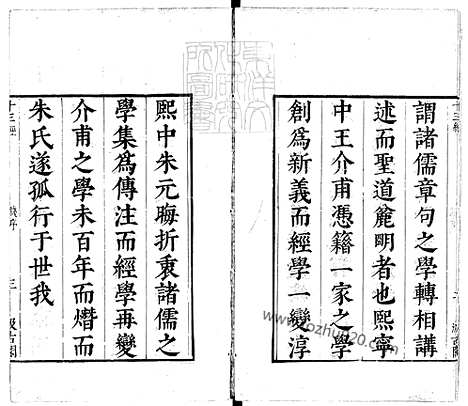 謂諸儒章句之學轉相講
述而聖道麄明者也熙寧
中王介甫憑籍一家之學
創為新義而經學一變淳
熙中朱元晦折衷諸儒之
學集為傳注而經學再變
介甫之學未百年而熸而
朱氏遂孤行于世我
十三經
三
汲古閣